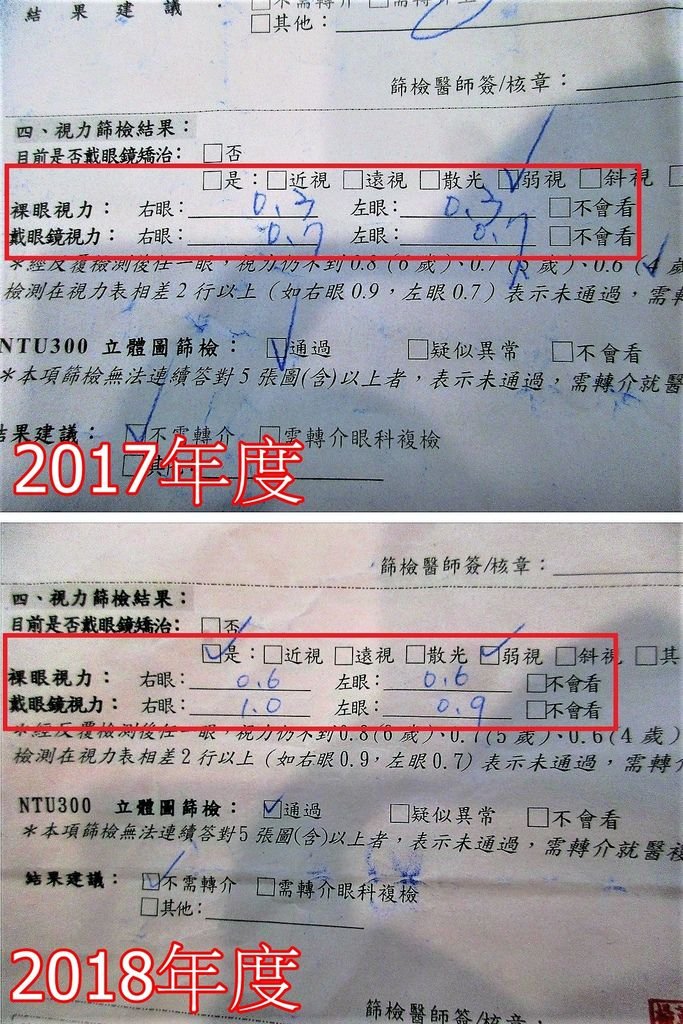 結果建議： □不需轉介 □需轉介
□其他：
篩檢醫師簽/核章：
四、視力篩檢結果：
目前是否戴眼鏡矯治： □否
□是：□近視 □遠視 □散光 ☑弱視 □斜視 □
裸眼視力： 右眼：0.3 左眼：0.3 □不會看
戴眼鏡視力： 右眼：0.7 左眼：0.7 □不會看
*經反覆檢測後任一眼，視力仍未到0.8(6歲)、0.7( 歲)、0.6( 歲
檢測在視力表相差2行以上（如右眼0.9，左眼0.7）表示未通過，需轉
NTU300 立體圖篩檢： ☑通過 □疑似異常 □不會看
*本項篩檢無法連續答對5張圖(含)以上者，表示未通過，需轉介就醫
結果建議： ☑不需轉介 □需轉介眼科複檢
□其他：
2017年度
篩檢醫師簽/核章：
四、視力篩檢結果：
目前是否戴眼鏡矯治： □否
☑是：□近視 □遠視 □散光 ☑弱視 □斜視 □其
裸眼視力： 右眼：0.6 左眼：0.6 □不會看
戴眼鏡視力： 右眼：1.0 左眼：0.9 □不會看
*經反覆檢測後任一眼，視力仍未到0.8(6歲)、0.7(5歲)、0.6(4歲)
檢測在視力表相差2行以上（如右眼0.9，左眼0.7）表示未通過，需轉介
NTU300 立體圖篩檢： ☑通過 □疑似異常 □不會看
*本項篩檢無法連續答對5張圖(含)以上者，表示未通過，需轉介就醫複
結果建議： ☑不需轉介 □需轉介眼科複檢
□其他：
2018年度
篩檢醫師簽/核章：